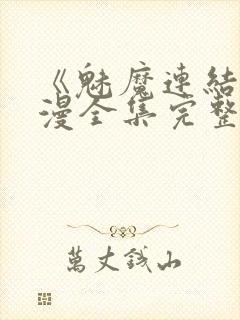 《魅魔連結
漫全集完整
萬丈錢山